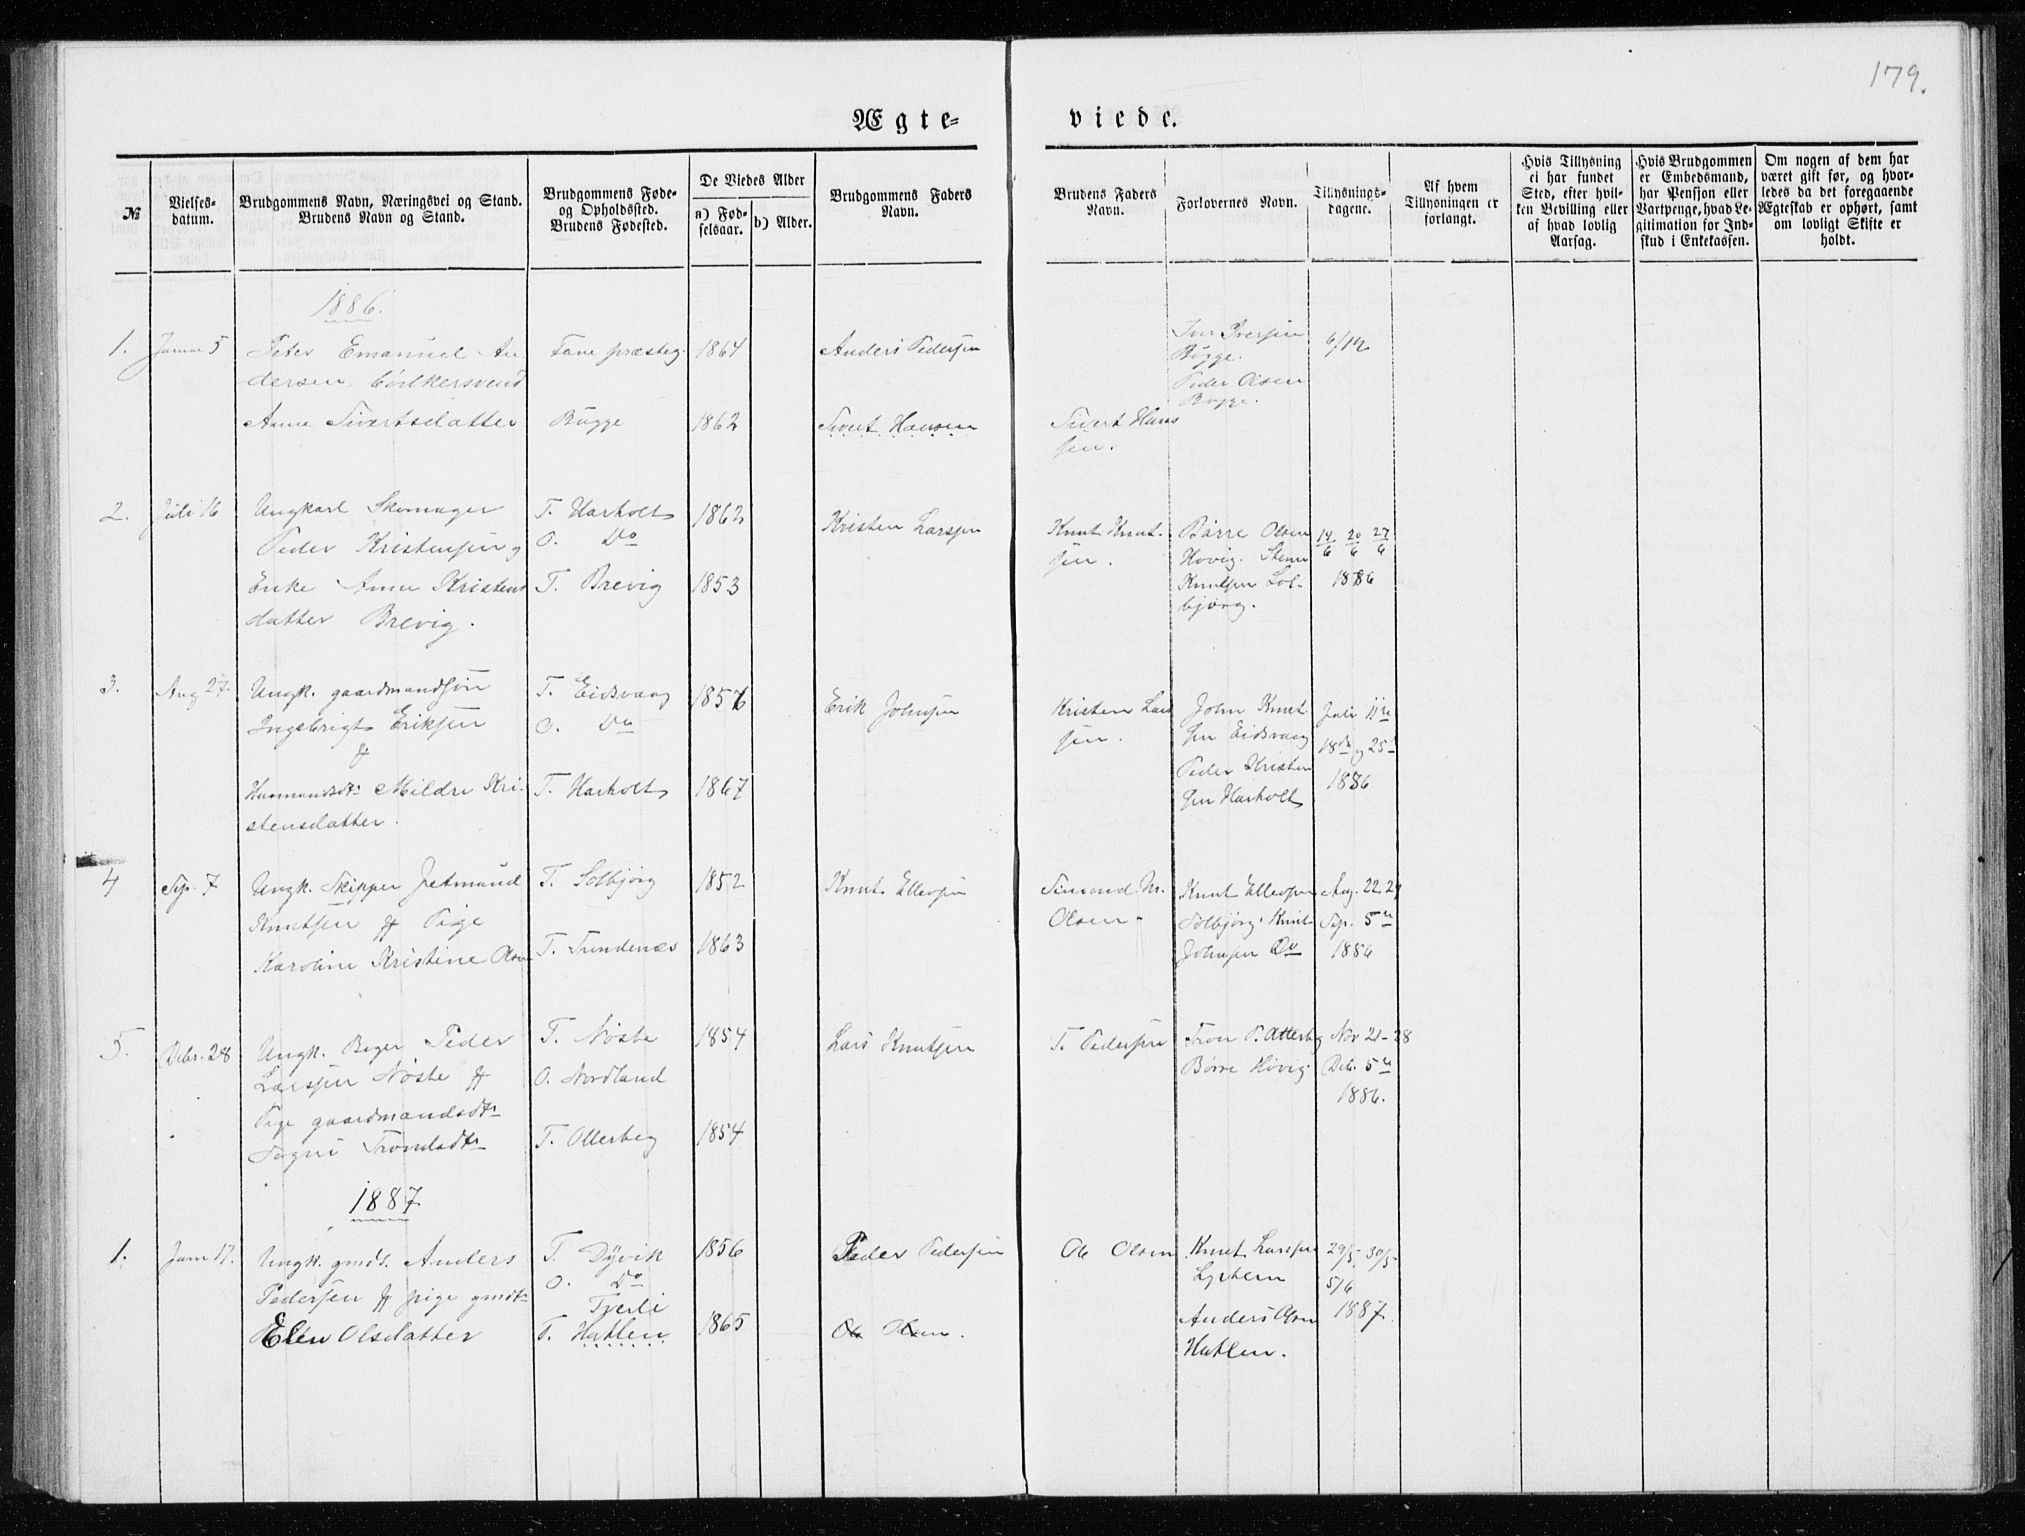 179.
Ægte-
viede.
№
Vielses-
datum.
Brudgommens Navn, Næringsvei og Stand.
Brudens Navn og Stand.
Brudgommens Føde-
og Opholdssted.
Brudens Fødested.
De Viedes Alder
a) Fød-
selsaar.
b) Alder.
Brudgommens Faders
Navn.
Brudens Faders
Navn.
Forlovernes Navn.
Tillysnings-
dagene.
Af hvem
Tillysningen er
forlangt.
Hvis Tillysning
ei har fundet
Sted, efter hvil-
ken Bevilling eller
af hvad lovlig
Aarsag.
Hvis Brudgommen
er Embedsmand,
har Pension eller
Vartpenge, hvad Le-
gitimation for Ind-
skud i Enkekassen.
Om nogen af dem har
været gift før, og hvor-
ledes da det foregaaende
Ægteskab er ophørt, samt
om lovligt Skifte er
holdt.
1886.
1. Januar 5
Peter Emanuel An
dersen
Anne Sivertsdatter
Fane præsteg.
Bugge
1864
1862
Anders Pedersen
Sivert Hansen
Sivert Hans
sen.
Iver Iversen
Bugge.
Peder Olsen
Bugge.
6/12
2. Juli 16
Ungkarl Skomager
Peder Kristensen og
Enke Anne Kristens
datter Brevig.
F. Harholt
O. Do
F. Brevig
1862
1853
Kristen Larsen
Knut Knut-
sen.
Børre Olsen
Hovig. Stener
Knutsen Sol-
bjørg.
20/6 27/6
1886
3. Aug 27
Ungk. gaardmandsøn
Ingebrigt Eriksen
&
Husmandsdtr Mildri Kri-
stensdatter.
F. Eidsvaag
O. Do
F. Harholt
1857
1867
Erik Johnsen
Kristen Lars
sen.
John Knut
sen Eidsvaag
Peder Kristen
sen Harholt
Juli 11te
18de og 25
1886
4 Sep. 7
Ungk. Skipper Jetmund
Knutsen & Pige
Karoline Kristine Olsen
F. Solbjørg
F. Trondenæs
1852
1863
Knut Ellevsen
Simond M.
Olsen
Knut Ellevsen
Solbjørg. Knut
Johnsen Do
Aug. 22. 29
Sep. 5te
1886
5. Debr. 28
Ungk. Bager Peder
Larsen Nøste &
Pige gaardmandsdtr
Trondsdtr
F. Nøste
O. Nordland
F. Otterbeg
1854
1854
Lars Knutsen
T. Pedersen
Tron P. Otterbeg
Børre Hovig.
Nov 21-28
Deb. 5te
1886.
1887
1. Juni 17.
Ungk. gmds. Anders
Pedersen & pige gmdtr
Elen Olsdatter
F. Dyvik
O. Do
Tverli
F. Hatlen
1856
1865
Peder Pedersen
Ole Olsen.
Ole Olsen
Knut Larsen
Lyshem
Anders Olsen
Hatlen.
29/5. 30/5
5/6
1887